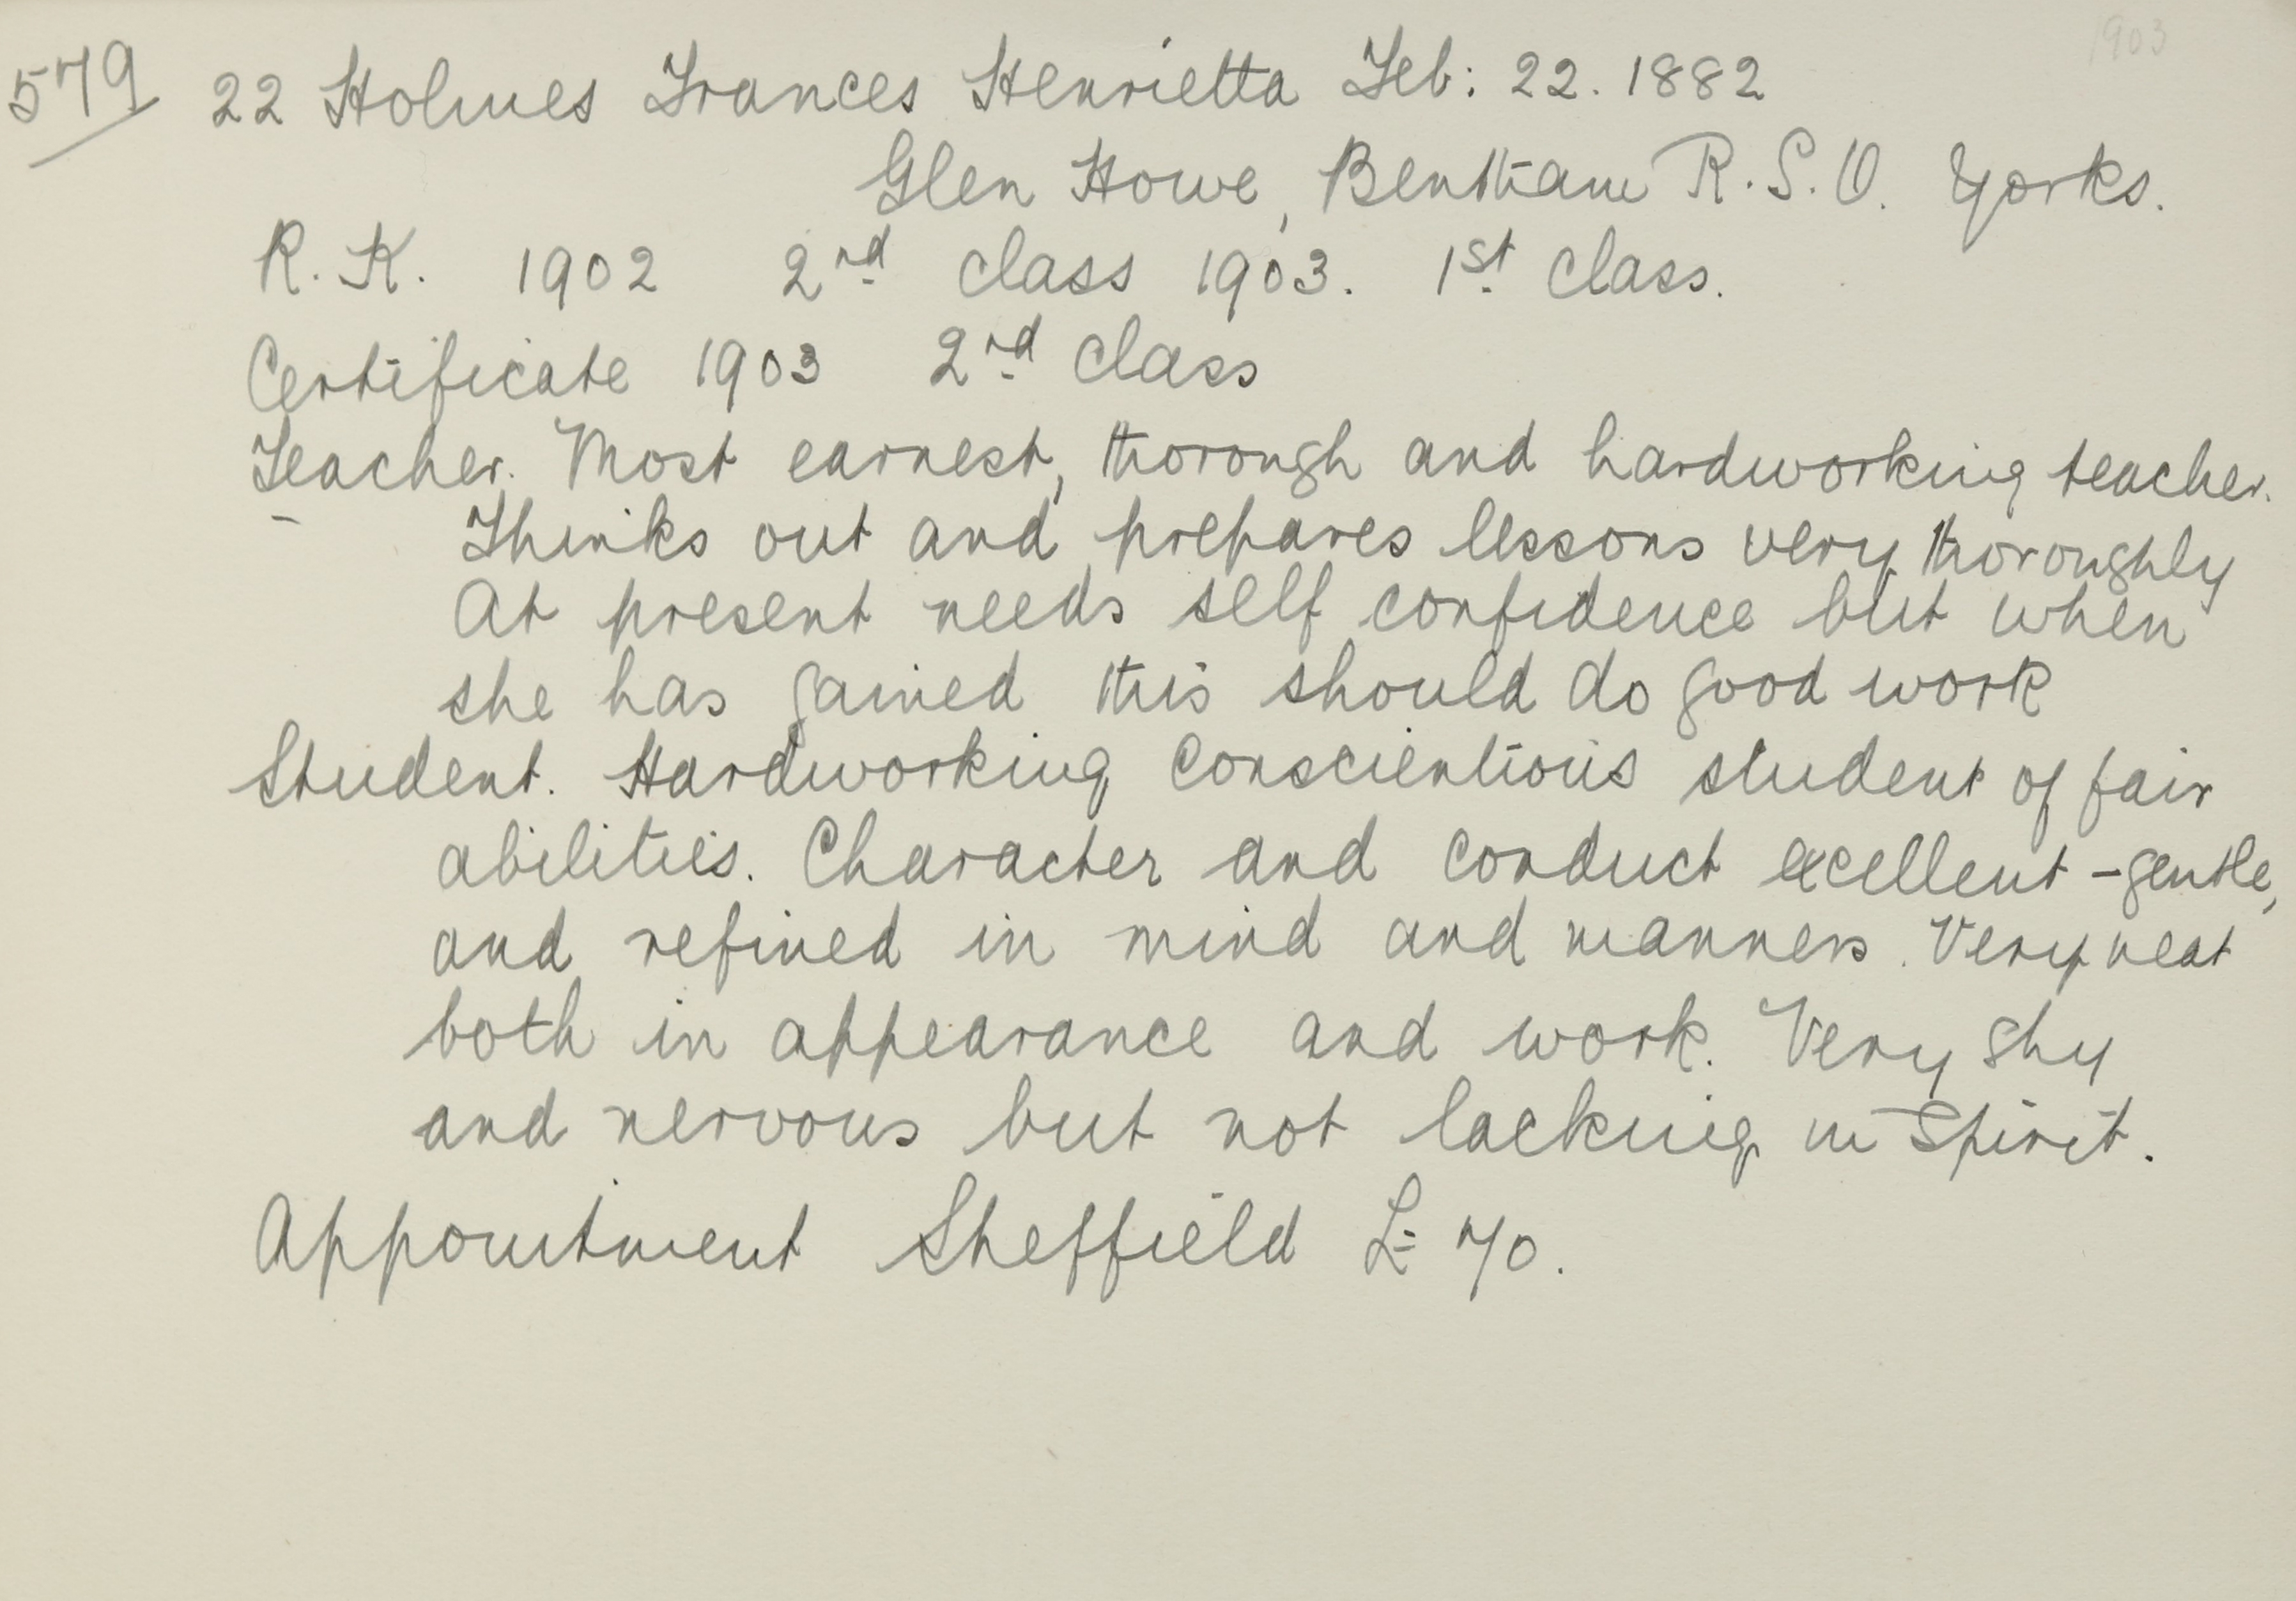 1903
579 22 Holmes Frances Henrietta Feb: 22. 1882
Glen Howe, Bentham R.S.O. Yorks.
R.K. 1902 2nd class 1903. 1st class.
Certificate 1903 2nd class
Teacher. Most earnest, thorough and hardworking teacher.
Thinks out and prepares lessons very thoroughly
At present needs self confidence but when
she has gained this should do good work
Student. Hardworking conscientious student of fair
abilities. Character and conduct excellent - gentle,
and refined in mind and manners. Very neat
both in appearance and work. Very shy
and nervous but not lacking in spirit.
Appointment Sheffield £ 70.